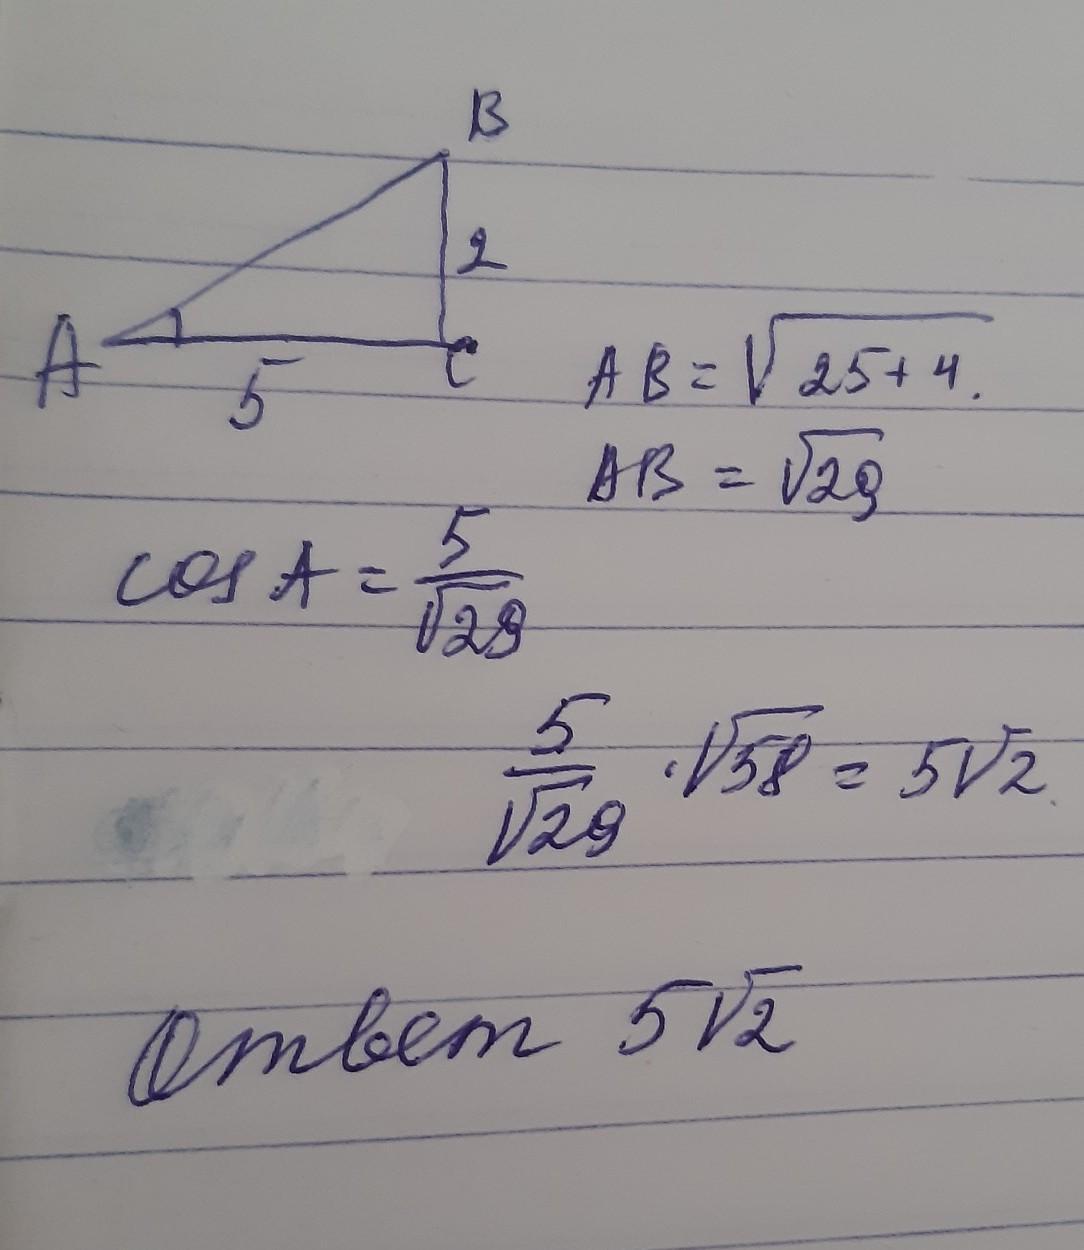 B
2
A
5
C
AB = √25+4.
AB = √29
cos A = 5/√29
5/√29 · √58 = 5√2.
Ответ 5√2